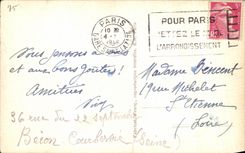 15
PARIS
POUR PARIS
METTEZ LE No DE
L'ARRONDISSEMENT
Nous pensons à
et aux bons goûters!
Amitiés
36 rue du 22 septembre
Bécon Courbevoie (Seine)
Madame
19 rue Michelet
St Etienne
(Loire)